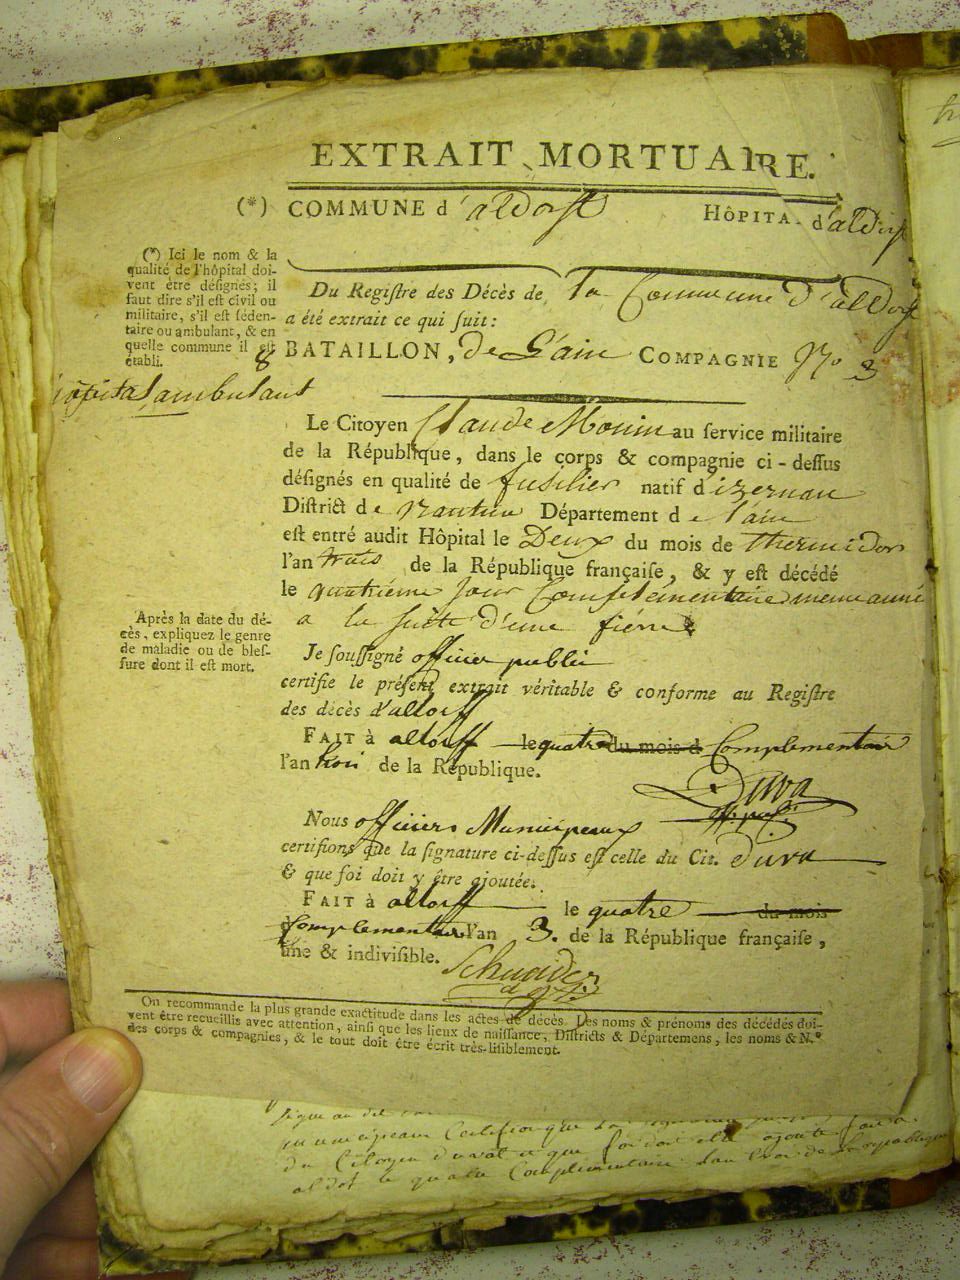 EXTRAIT MORTUAIRE.
(*) COMMUNE d'aldorst HÔPITA. d'aldorf
(*) Ici le nom & la
qualité de l'hôpital doi-
vent être désignés; il
faut dire s'il est civil ou
militaire, s'il est séden-
taire ou ambulant, & en
quelle commune il est
établi.
hôpital ambulant
Du Registre des Décès de la Commune d'aldorf
a été extrait ce qui suit:
8 BATAILLON, de L'ain COMPAGNIE No 3
Le Citoyen Claude Monin au service militaire
de la République, dans le corps & compagnie ci-dessus
désignés en qualité de fusilier natif d'izernau
District de nantua Département de l'ain
est entré audit Hôpital le Deux du mois de thermidor
l'an trois de la République française, & y est décédé
le quatriéme jour Complementaire meme anné
a la suite d'une fiévre
Après la date du dé-
cès, expliquez le genre
de maladie ou de bles-
sure dont il est mort.
Je soussigné officier public
certifie le présent extrait véritable & conforme au Registre
des décès d'altorff
FAIT à altorff le quatre du mois d Complementair
l'an troi de la République.
Duva
Nous officiers Municipeaux
certifions que la signature ci-dessus est celle du Cit. Duva
& que foi doit y être ajoutée.
FAIT à altorff le quatre du mois
Complementair l'an 3. de la République française,
une & indivisible.
Schneider
On recommande la plus grande exactitude dans les actes de décès. Les noms & prénoms des décédés doi-
vent être recueillis avec attention, ainsi que les lieux de naissance, Districts & Départemens, les noms & N.°
des corps & compagnies, & le tout doit être écrit très-lisiblement.
municipeaux Certifion que
du Citoyen duval et que foi doit etre ajouté fait a
aldof le quatre Complimentaire l'an trois de la republique